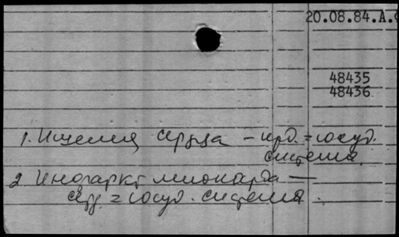 20.08.84.А.
48435
48436
1. Ишемия сердца – серд.=сосуд.
система
2. Инфаркт миокарда —
серд.=сосуд. система.